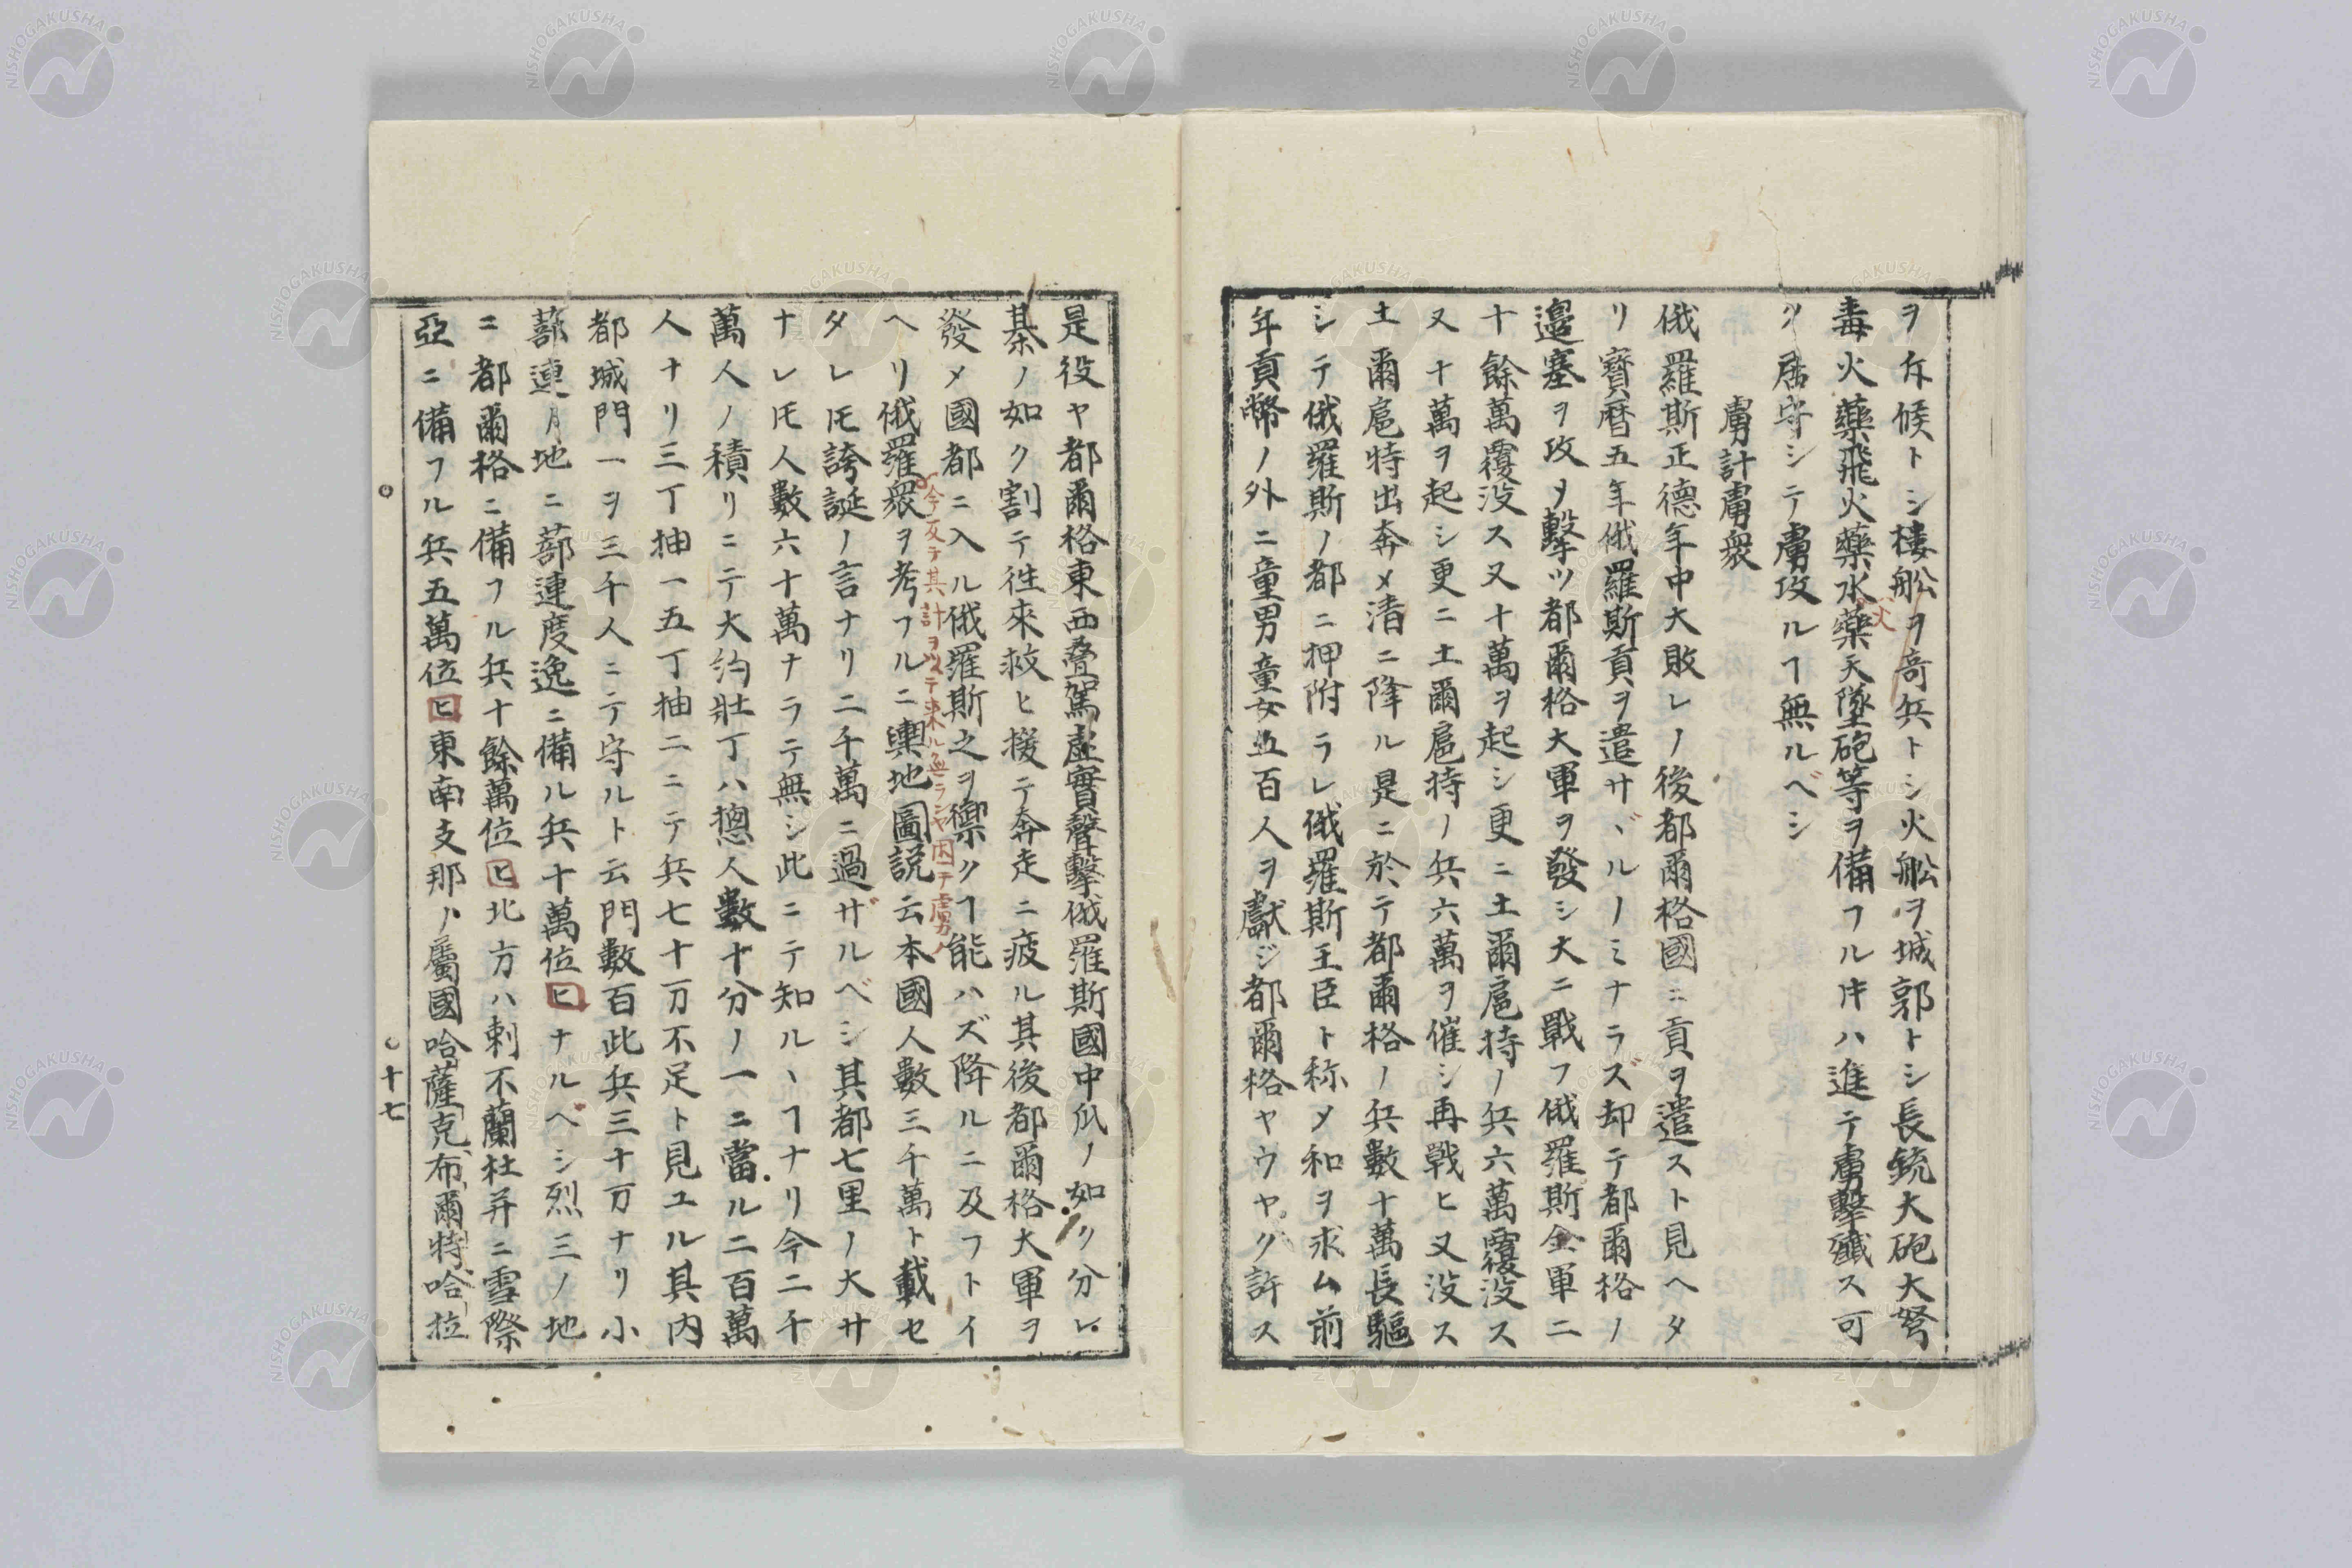 ヲ斥候トシ樓舩ヲ竒兵トシ火舩ヲ城郭トシ長銃大砲大弩
毒火藥飛火藥水藥天墜砲等ヲ備フルキハ進テ虜擊殲ス可
ク居守シテ虜攻ルヿ無ルベシ
虜計虜衆
俄羅斯正德年中大敗レノ後都爾格國ニ貢ヲ遣スト見ヘタ
リ寶曆五年俄羅斯貢ヲ遣サヾルノミナラズ却テ都爾格ノ
邉塞ヲ攻メ擊ツ都爾格大軍ヲ發シ大ニ戰フ俄羅斯全軍二
十餘萬覆没ス又十萬ヲ起シ更ニ土爾扈特ノ兵六萬覆没ス
又十萬ヲ起シ更ニ土爾扈特ノ兵六萬ヲ催シ再戰ヒ又没ス
土爾扈特出奔メ清ニ降ル是ニ於テ都爾格ノ兵數十萬長驅
シテ俄羅斯ノ都ニ押附ラレ俄羅斯王臣ト称メ和ヲ求ム前
年貢幣ノ外ニ童男童女五百人ヲ獻ジ都爾格ヤウヤク許ス
是役ヤ都爾格東西叠駕虚實聲擊俄羅斯國中瓜ノ如ク分レ
棊ノ如ク割テ徃來救ヒ援テ奔走ニ疲ル其後都爾格大軍ヲ
發メ國都ニ入ル俄羅斯之ヲ禦クヿ能ハズ降ルニ及フトイ
今反テ其計ヲ以テ來ル無ランヤ因テ虜ノ
ヘリ俄羅衆ヲ考フルニ輿地圖説云本國人數三千萬ト載セ
タレ𪜈誇誕ノ言ナリ二千萬ニ過ザルベシ其都七里ノ大サ
ナレ𪜈人數六十萬ナラテ無シ此ニテ知ルヽヿナリ今二千
萬人ノ積リニテ大約壯丁ハ摠人數十分ノ一ニ當ル二百萬
人ナリ三丁抽一五丁抽二ニテ兵七十万不足ト見ユル其内
都城門一ヲ三千人ニテ守ルト云門數百此兵三十万ナリ小
蔀連月地ニ蔀連度逸ニ備ル兵十萬位ヒナルベシ烈三ノ地
ニ都爾格ニ備フル兵十餘萬位ヒ北方ハ刺不蘭杜并ニ雪際
亞ニ備フル兵五萬位ヒ東南支那ノ屬國哈薩克布爾特哈拉
十七